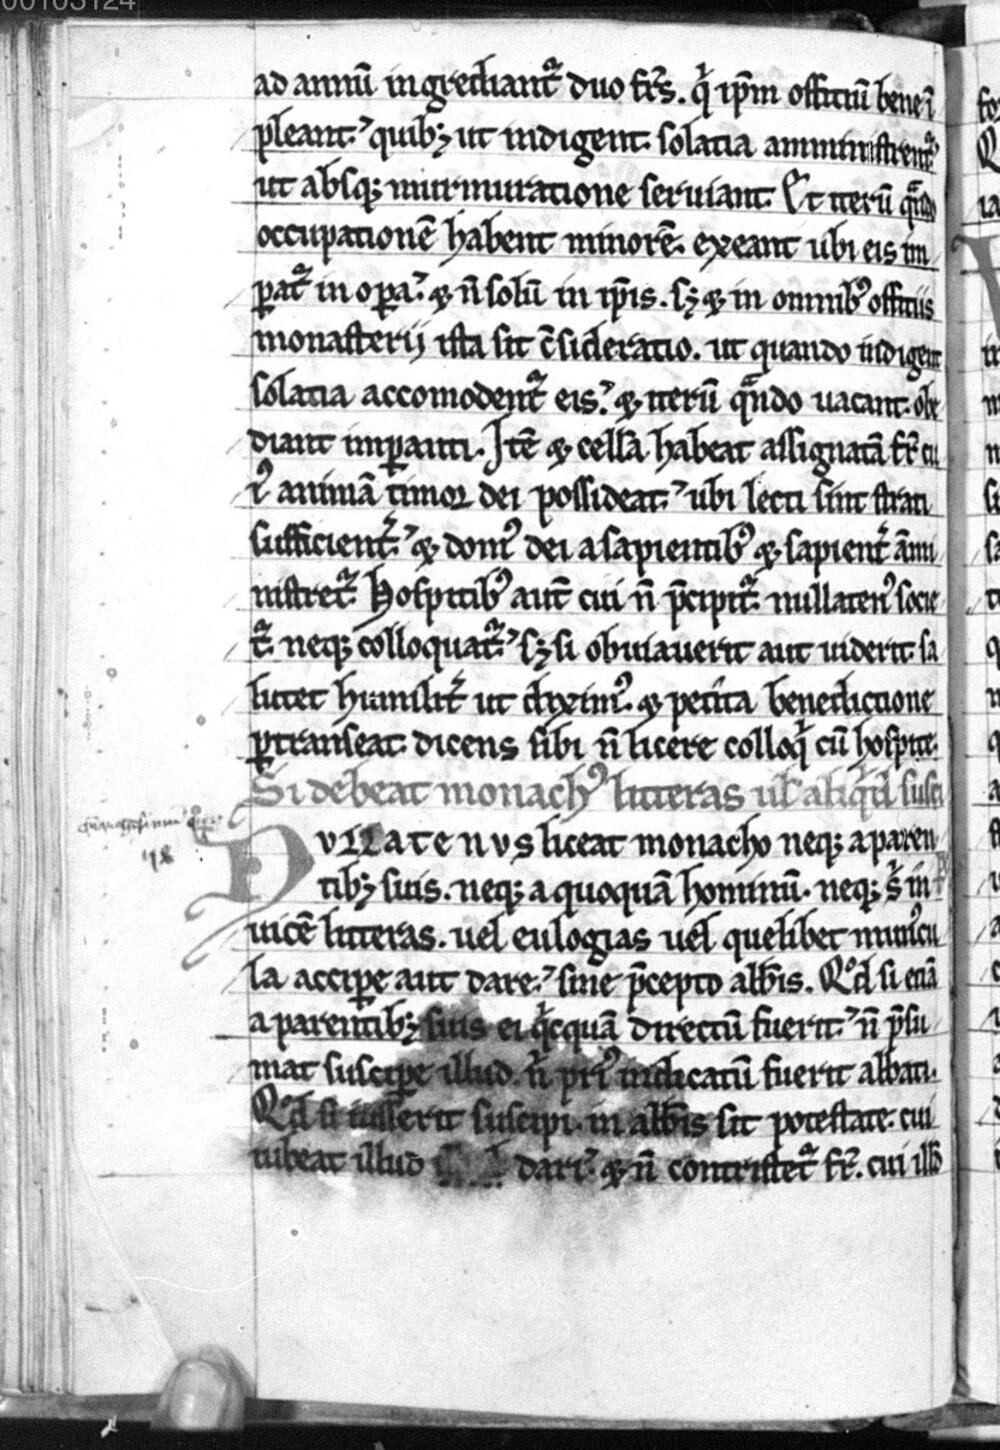 00103124
ad annū ingrediant᷑ duo frēs. q̇ ip̄m officiū bene ī
pleant. quibꝫ ut indigent solatia amministrent᷑
ut absqꝫ murmuratione seruiant. Et iterū qn̄do
occupationē habent minorē. exeant ubi eis im
ꝑat᷑ in oꝑa. ⁊ n̄ solū in ip̄is. sꝫ ⁊ in omnibꝰ officiis
monasterij ista sit ɔ̄sideratio. ut quando indigent
solatia accomodent᷑ eis. ⁊ iterū qn̄do uacant. obe
diant imꝑanti. Itē ⁊ cellā habeat assignatā fr̄ cu
iꝰ animā timor dei possideat. ubi lecti sint strati
sufficient᷑. ⁊ domꝰ dei a sapientibꝰ ⁊ sapient᷑ āmi
nistret᷑. Hospitibꝰ aut̄ cui n̄ p̄cipit᷑ nullatenꝰ socie
t᷑ neqꝫ colloquat᷑. sꝫ si obuiauerit aut uiderit sa
lutet humilit᷑ ut diximꝰ. ⁊ petita benedictione
ꝑtranseat. dicens sibi n̄ licere colloq̇ cū hospite.
Si debeat monachꝰ litteras ul̄ aliqͥd susci
NVLLATENVS liceat monacho neqꝫ a paren
tibꝫ suis. neqꝫ a quoquā hominū. neqꝫ s̄ in
uicē litteras. uel eulogias uel quelibet munꝰcu
la accipe aut dare. sine p̄cepto abb̄is. Qd̄ si etiā
a parentibꝫ suis ei q̇cquā directū fuerit. n̄ p̄su
mat suscipe illud. n̄ priꝰ indicatū fuerit abbati.
Qd̄ si iusserit suscipi. in abb̄is sit potestate. cui
iubeat illud dari. ⁊ n̄ contristet᷑ fr̄. cui illd̄